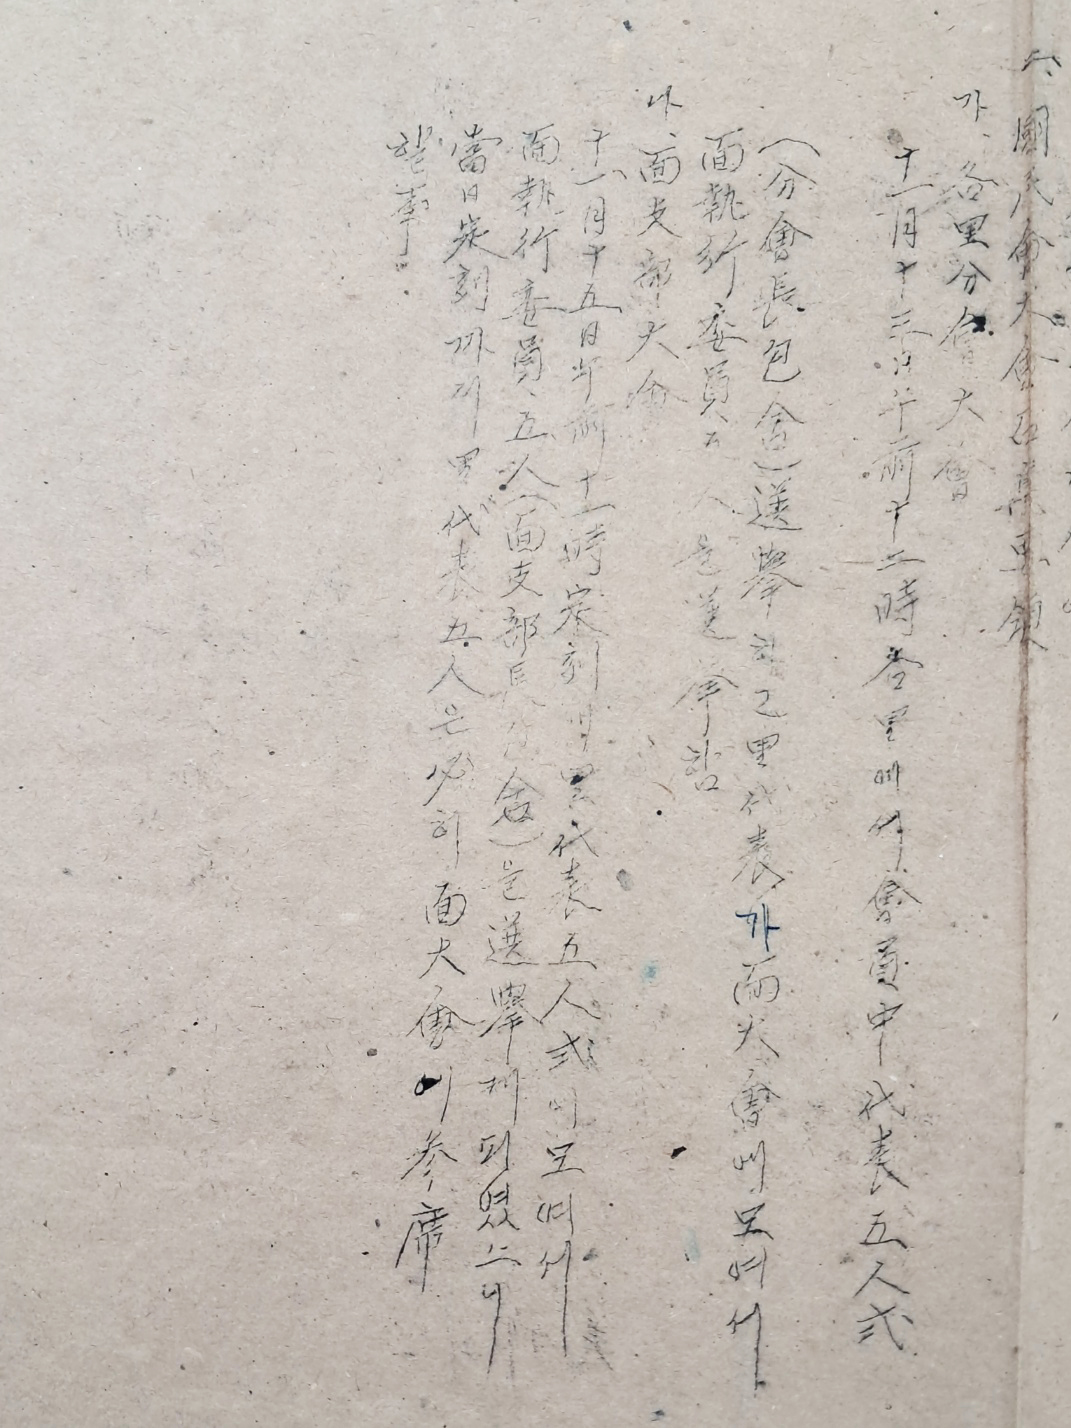 六、國民會大會及 要領
가、各里分會大會
十一月十三日午前十二時各里에서會員中代表五人式
(分會長包含)選擧하고里代表가面大會에모여서
面執行委員五人을選擧함
나、面支部大會
十一月十五日午前十一時定刻에里代表五人式이모여서
面執行委員五人(面支部長包含)을選擧케되엿스니
當日定刻까지里代表五人은必히面大會에參席
할事.